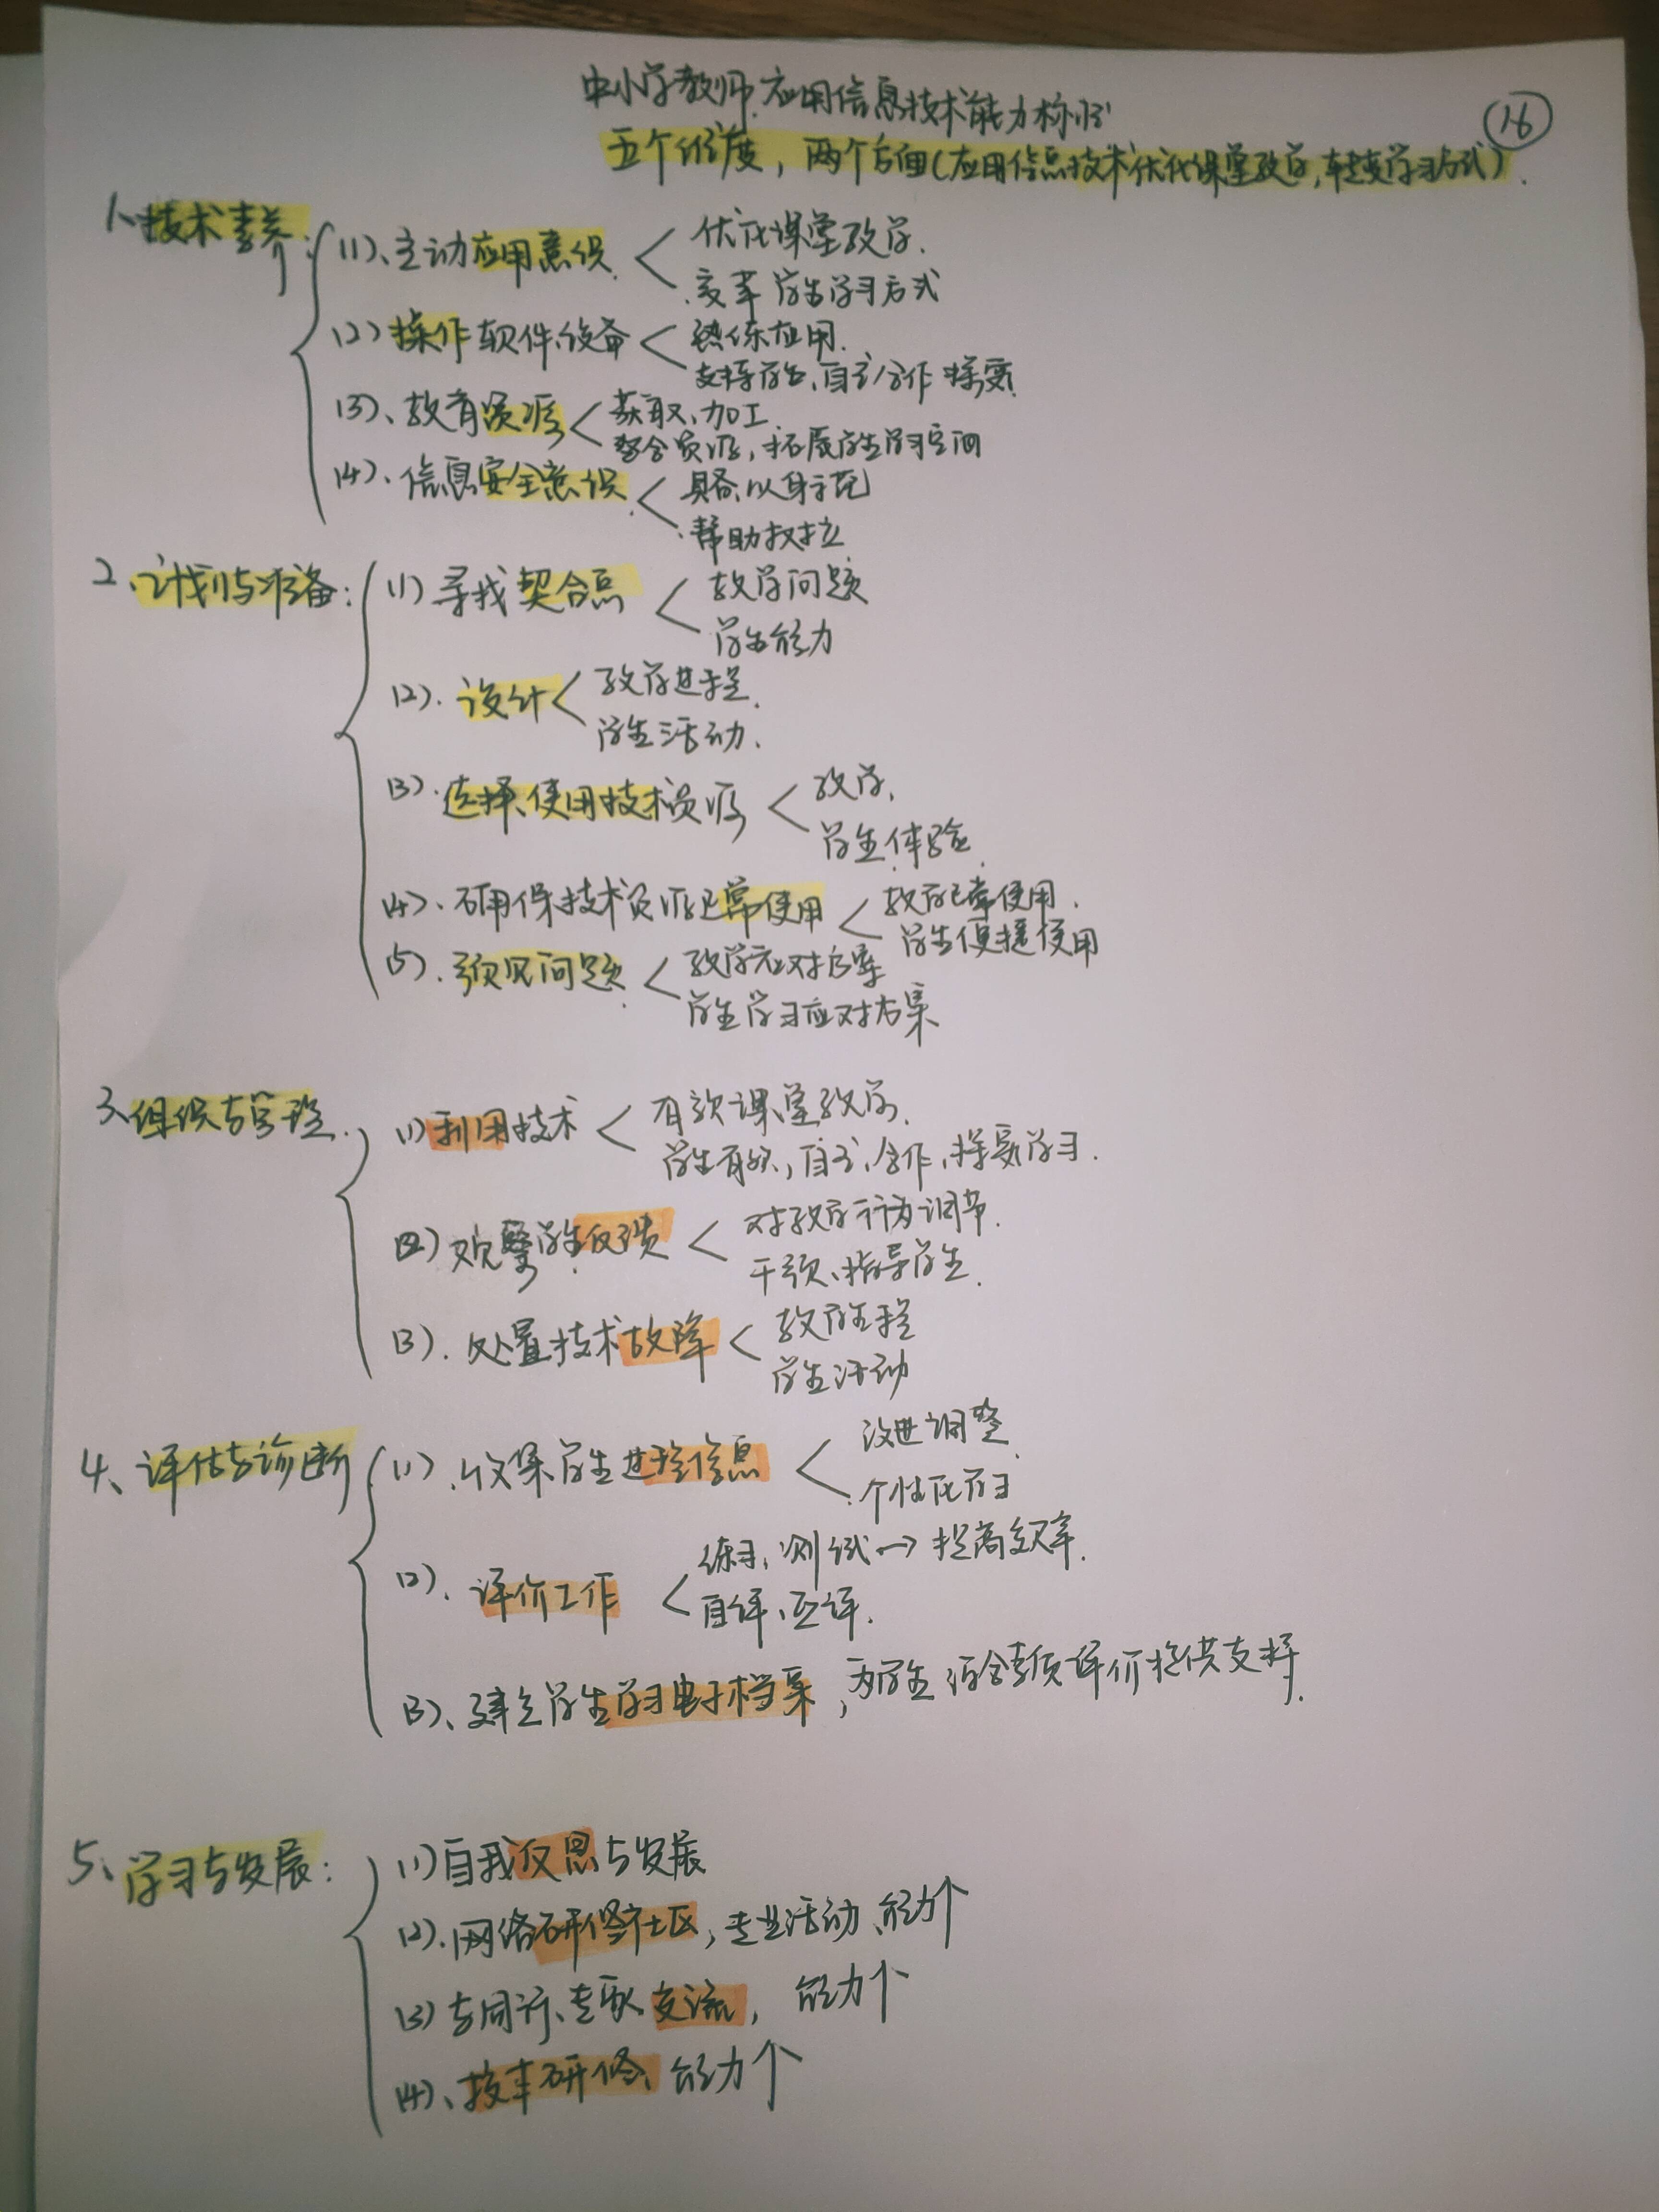 中小学教师应用信息技术能力标准
16
五个维度，两个方面（应用信息技术优化课堂教学，转变学习方式）.
1、技术素养：
(1)、主动应用意识
优化课堂教学.
变革学生学习方式
(2) 操作软件、设备
熟练应用.
支持学生、自主合作探究
(3)、教育资源
获取、加工
整合资源，拓展学生学习空间
(4)、信息安全意识
具备、以身示范
帮助树立
2、计划与准备：
(1) 寻找契合点
教学问题
学生能力
(2). 设计
教学进程.
学生活动.
(3). 选择、使用技术资源
教学.
学生体验.
(4)、确保技术资源正常使用
教学正常使用.
学生便捷使用
(5). 预见问题
教学应对方案
学生学习应对方案
3、组织与管理.
(1) 利用技术
有效课堂教学.
学生有效，自主、合作、探究学习.
(2) 观察学生反馈
对教学行为调节.
干预、指导学生.
(3). 处置技术故障
教学过程
学生活动
4、评估与诊断
(1). 收集学生过程信息
改进调整
个性化学习
(2). 评价工作
练习、测试→提高效率.
自评、互评.
(3)、建立学生学习电子档案，为学生综合素质评价提供支持.
5、学习与发展：
(1) 自我反思与发展
(2). 网络研修社区，专业活动、能力个
(3) 与同行、专家交流，能力个
(4)、技术研修、能力个